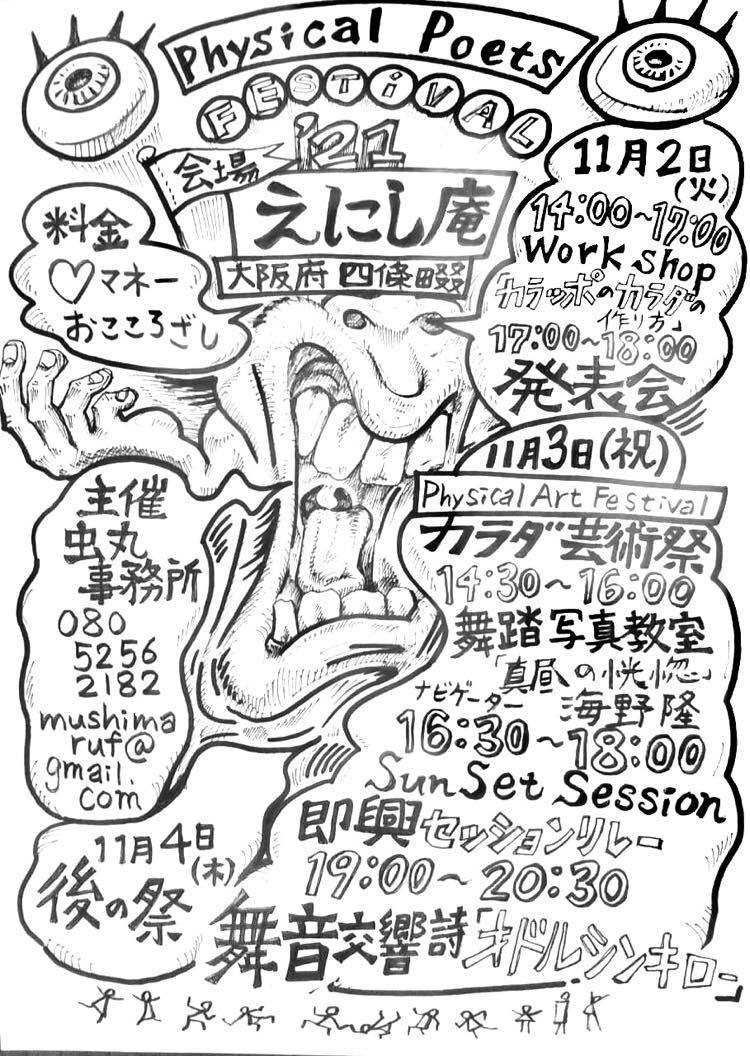 Physical Poets
FESTIVAL
'21
会場
えにし庵
大阪府 四條畷
料金
♡マネー
おこころざし
11月2日
(火)
14:00~17:00
Work shop
「カラッポのカラダの
作り方」
17:00~18:00
発表会
11月3日(祝)
Physical Art Festival
カラダ芸術祭
14:30~16:00
舞踏写真教室
「真昼の恍惚」
ナビゲーター 海野隆
16:30~18:00
SunSet Session
即興セッションリレー
19:00~20:30
舞音交響詩「オドルシンキロー」
主催
虫丸
事務所
080
5256
2182
mushima
ruf@
gmail.
com
11月4日
(木)
後の祭